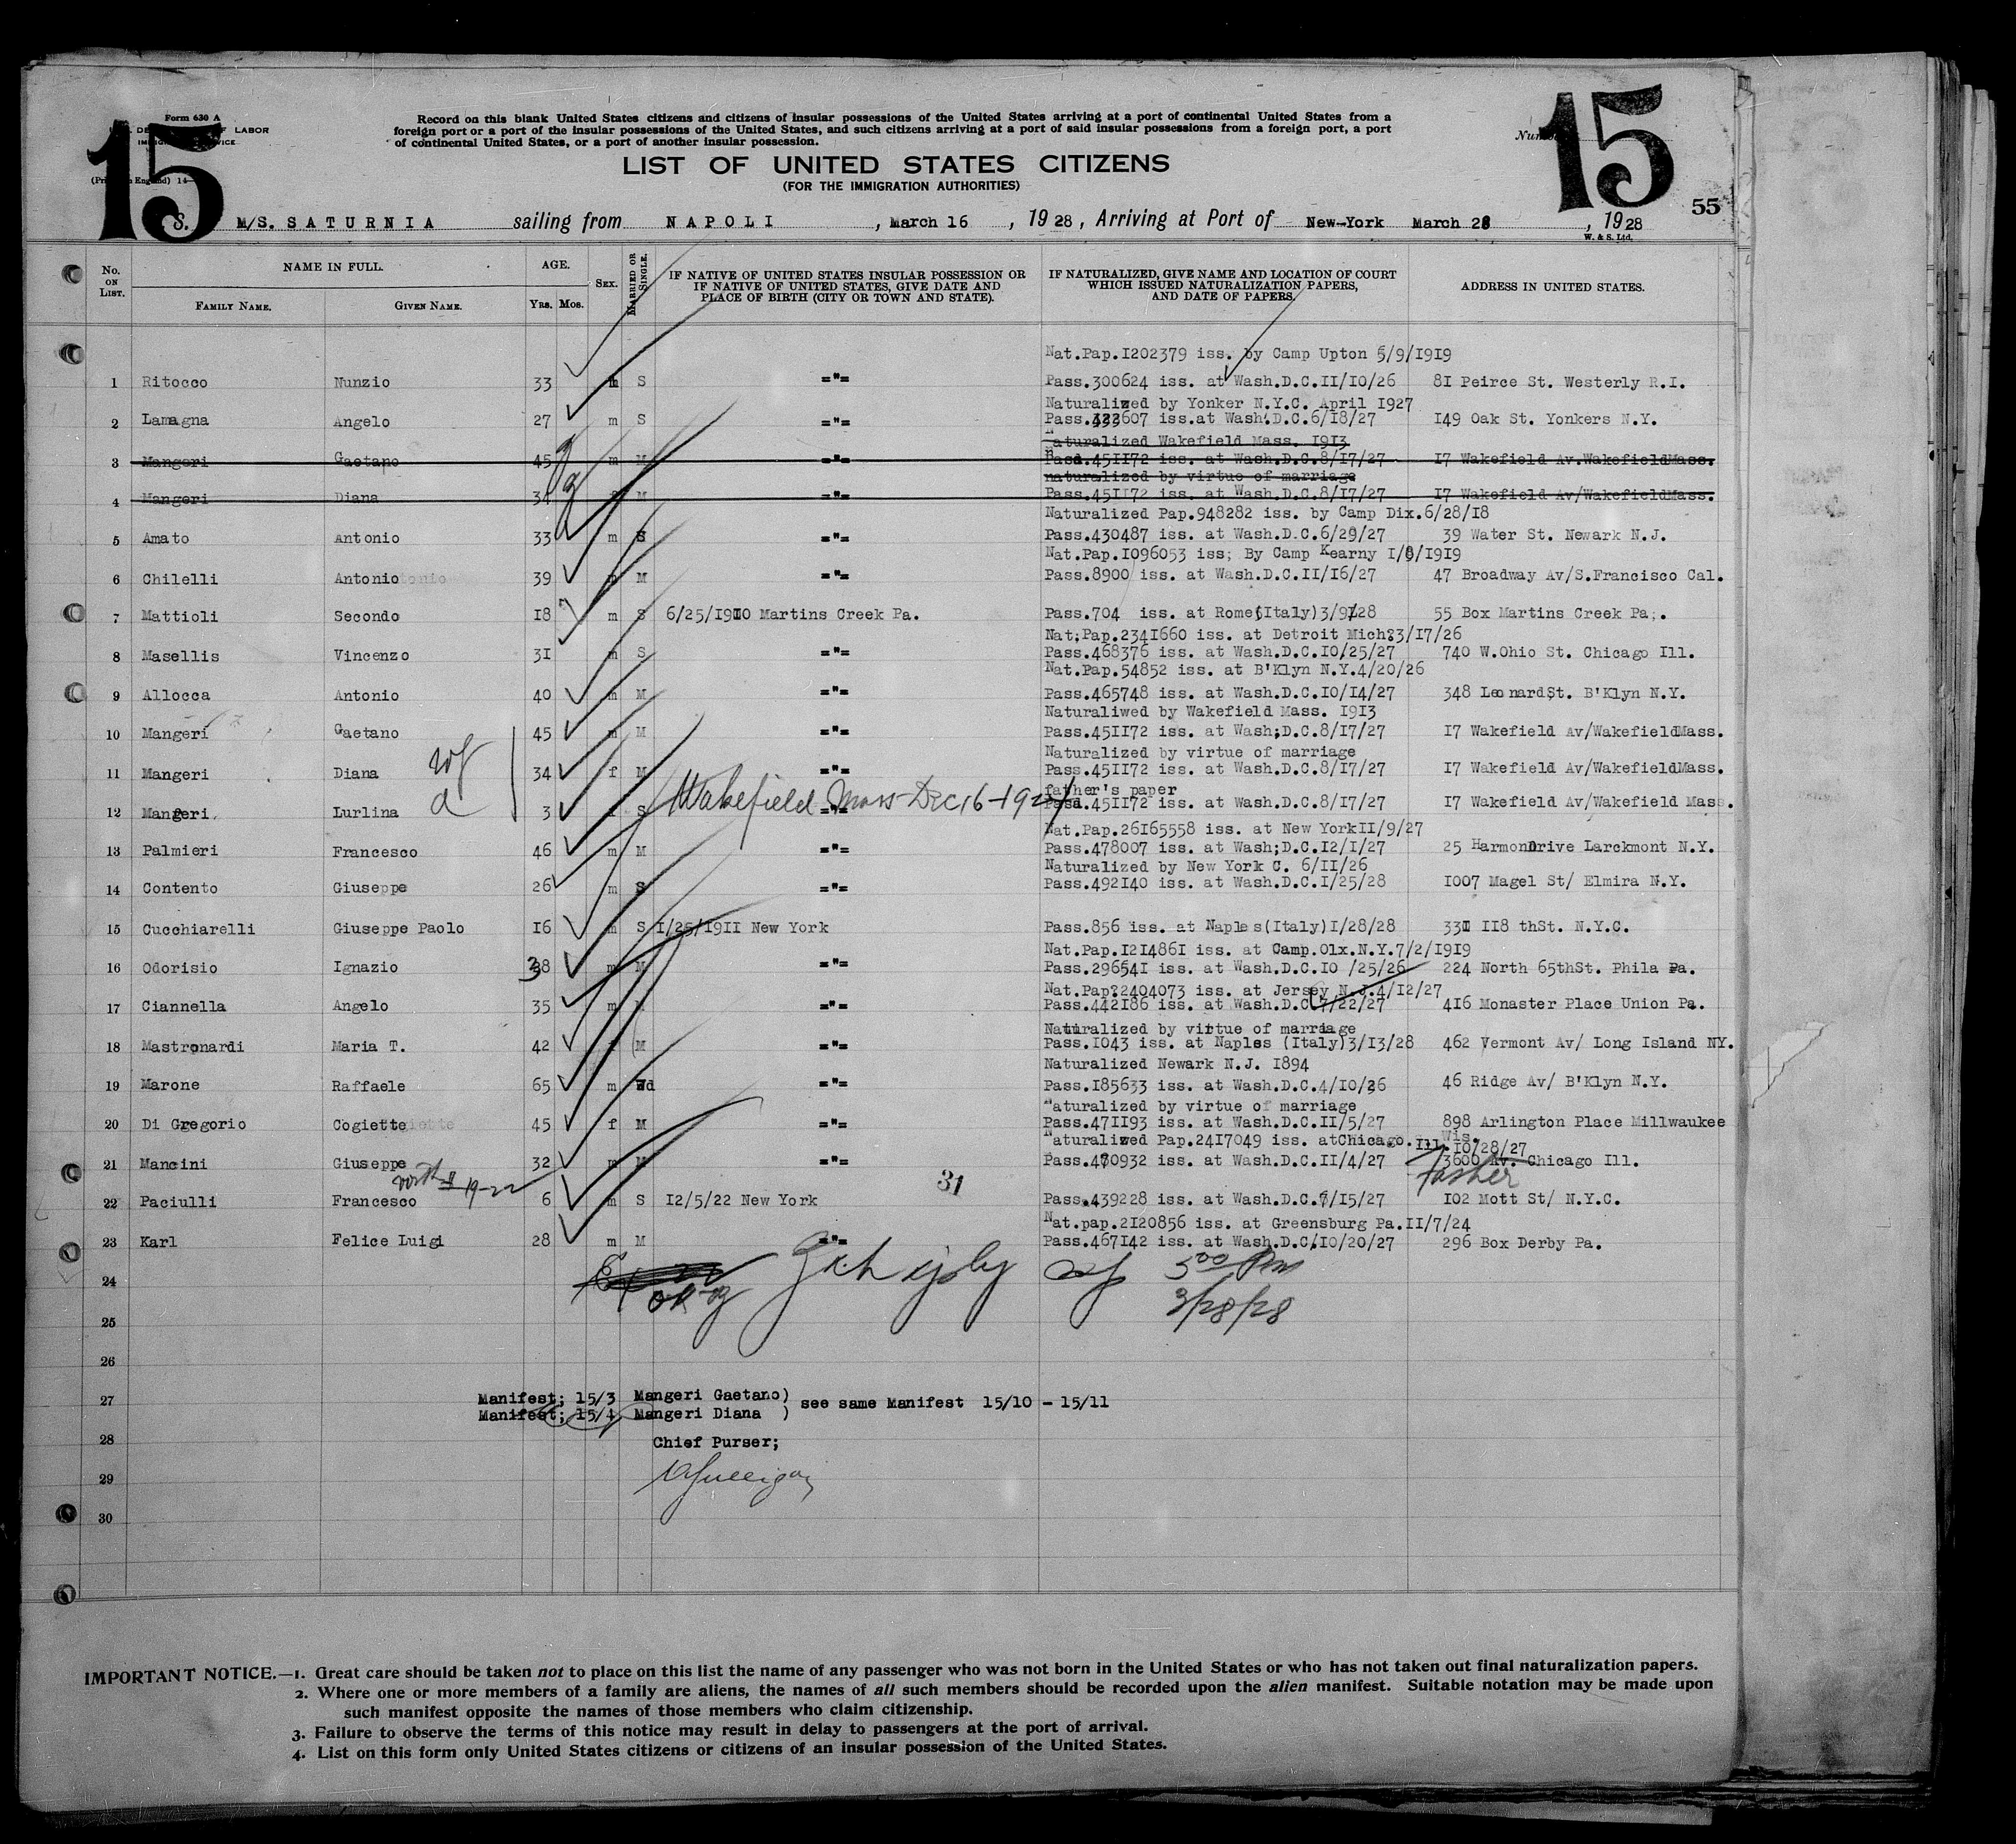 15
15
55
Form 630 A
LABOR
Record on this blank United States citizens and citizens of insular possessions of the United States arriving at a port of continental United States from a
foreign port or a port of the insular possessions of the United States, and such citizens arriving at a port of said insular possessions from a foreign port, a port
of continental United States, or a port of another insular possession.
LIST OF UNITED STATES CITIZENS
(FOR THE IMMIGRATION AUTHORITIES)
S. M/S. SATURNIA sailing from NAPOLI , March 16 , 1928, Arriving at Port of New-York March 28 , 1928
W. & S. Ltd.
No. ON LIST. NAME IN FULL. FAMILY NAME. GIVEN NAME. AGE. YRS. MOS. SEX. MARRIED OR SINGLE. IF NATIVE OF UNITED STATES INSULAR POSSESSION OR IF NATIVE OF UNITED STATES, GIVE DATE AND PLACE OF BIRTH (CITY OR TOWN AND STATE). IF NATURALIZED, GIVE NAME AND LOCATION OF COURT WHICH ISSUED NATURALIZATION PAPERS, AND DATE OF PAPERS. ADDRESS IN UNITED STATES.
Nat.Pap.I202379 iss. by Camp Upton 5/9/I9I9
1 Ritocco Nunzio 33 m S ="= Pass.300624 iss. at Wash.D.C.II/I0/26 8I Peirce St. Westerly R.I.
Naturalized by Yonker N.Y.C. April I927
2 Lamagna Angelo 27 m S ="= Pass.322607 iss.at Wash.D.C.6/I8/27 I49 Oak St. Yonkers N.Y.
Naturalized Wakefield Mass. I9I3
3 Mangeri Gaetano 45 m M ="= Pass.45II72 iss. at Wash.D.C.8/I7/27 I7 Wakefield Av.WakefieldMass.
naturalized by virtue of marriage
4 Mangeri Diana 34 M ="= Pass.45II72 iss. at Wash.D.C.8/I7/27 I7 Wakefield Av/WakefieldMass.
Naturalized Pap.948282 iss. by Camp Dix.6/28/I8
5 Amato Antonio 33 m S ="= Pass.430487 iss. at Wash.D.C.6/29/27 39 Water St. Newark N.J.
Nat.Pap.I096053 iss; By Camp Kearny I/8/I9I9
6 Chilelli Antonio 39 m M ="= Pass.8900 iss. at Wash.D.C.II/I6/27 47 Broadway Av/S.Francisco Cal.
7 Mattioli Secondo I8 m S 6/25/I9I0 Martins Creek Pa. Pass.704 iss. at Rome(Italy)3/9/28 55 Box Martins Creek Pa;.
Nat;Pap.234I660 iss. at Detroit Mich:3/I7/26
8 Masellis Vincenzo 3I m S ="= Pass.468376 iss. at Wash.D.C.I0/25/27 740 W.Ohio St. Chicago Ill.
Nat.Pap.54852 iss. at B'Klyn N.Y.4/20/26
9 Allocca Antonio 40 m M ="= Pass.465748 iss. at Wash.D.C.I0/I4/27 348 LeonardSt. B'Klyn N.Y.
Naturaliwed by Wakefield Mass. I9I3
10 Mangeri Gaetano 45 m M ="= Pass.45II72 iss. at Wash;D.C.8/I7/27 I7 Wakefield Av/WakefieldMass.
wf
Naturalized by virtue of marriage
11 Mangeri Diana 34 f M ="= Pass.45II72 iss. at Wash.D.C.8/I7/27 I7 Wakefield Av/WakefieldMass.
d
Wakefield Mass-Dec 16-1924
father's paper
12 Mangeri Lurlina 3 f S ="= Pass.45II72 iss. at Wash.D.C.8/I7/27 I7 Wakefield Av/Wakefield Mass.
Nat.Pap.26I65558 iss. at New YorkII/9/27
13 Palmieri Francesco 46 m M ="= Pass.478007 iss. at Wash;D.C.I2/I/27 25 HarmonDrive Larckmont N.Y.
Naturalized by New York C. 6/II/26
14 Contento Giuseppe 26 m S ="= Pass.492I40 iss. at Wash.D.C.I/25/28 I007 Magel St/ Elmira N.Y.
15 Cucchiarelli Giuseppe Paolo I6 m S I/25/I9II New York Pass.856 iss. at Naples(Italy)I/28/28 33I II8 thSt. N.Y.C.
Nat.Pap.I2I486I iss. at Camp.Olx.N.Y.7/2/I9I9
16 Odorisio Ignazio 38 m M ="= Pass.29654I iss. at Wash.D.C.I0 /25/26 224 North 65thSt. Phila Pa.
Nat.Pap:2404073 iss. at Jersey N.J.4/I2/27
17 Ciannella Angelo 35 m ="= Pass.442I86 iss. at Wash.D.C.7/22/27 4I6 Monaster Place Union Pa.
Naturalized by virtue of marriage
18 Mastronardi Maria T. 42 f M ="= Pass.I043 iss. at Naples (Italy)3/I3/28 462 Vermont Av/ Long Island NY.
Naturalized Newark N.J. I894
19 Marone Raffaele 65 m Wd ="= Pass.I85633 iss. at Wash.D.C.4/I0/26 46 Ridge Av/ B'Klyn N.Y.
Naturalized by virtue of marriage
20 Di Gregorio Cogiette 45 f M ="= Pass.47II93 iss. at Wash.D.C.II/5/27 898 Arlington Place Millwaukee Wis.
Naturalized Pap.24I7049 iss. atChicago.Ill.I0/28/27
21 Mancini Giuseppe 32 m M ="= Pass.470932 iss. at Wash.D.C.II/4/27 3600 Av. Chicago Ill.
Father
31
22 Paciulli Francesco 6 m S I2/5/22 New York Pass.439228 iss. at Wash.D.C.7/I5/27 I02 Mott St/ N.Y.C.
Nat.pap.2I20856 iss. at Greensburg Pa.II/7/24
23 Karl Felice Luigi 28 m M ="= Pass.467I42 iss. at Wash.D.C.I0/20/27 296 Box Derby Pa.
24
5 00 Pm
OK
3/28/28
25
26
27 Manifest; 15/3 Mangeri Gaetano) see same Manifest 15/10 - 15/11
Manifest; 15/4 Mangeri Diana )
28 Chief Purser;
29
30
IMPORTANT NOTICE.—1. Great care should be taken not to place on this list the name of any passenger who was not born in the United States or who has not taken out final naturalization papers.
2. Where one or more members of a family are aliens, the names of all such members should be recorded upon the alien manifest. Suitable notation may be made upon
such manifest opposite the names of those members who claim citizenship.
3. Failure to observe the terms of this notice may result in delay to passengers at the port of arrival.
4. List on this form only United States citizens or citizens of an insular possession of the United States.